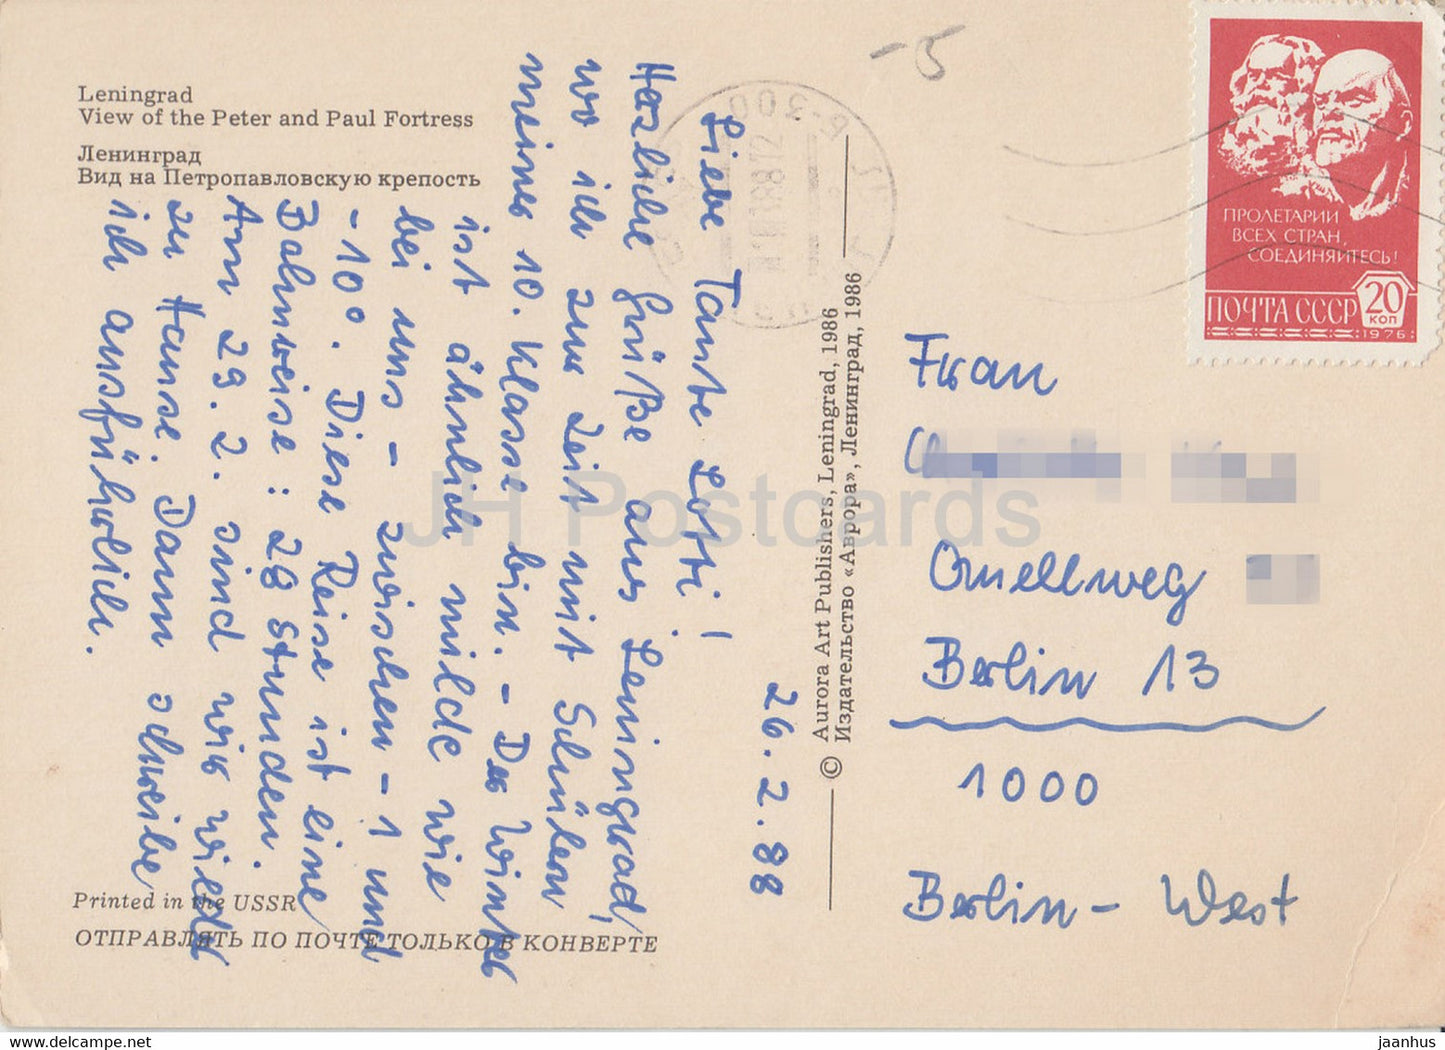 Leningrad
View of the Peter and Paul Fortress
Ленинград
Вид на Петропавловскую крепость
26.2.88
Liebe Tante Lotti!
Herzliche Grüße aus Leningrad,
wo ich zur Zeit mit Schülern
meiner 10. Klasse bin. - Der Winter
ist ähnlich milde wie
bei uns - zwischen -1 und
-10°. Diese Reise ist eine
Bahnreise: 28 Stunden.
Am 29.2. sind wir wieder
zu Hause. Dann schreibe
ich ausführlich.
Printed in the USSR
ОТПРАВЛЯТЬ ПО ПОЧТЕ ТОЛЬКО В КОНВЕРТЕ
© Aurora Art Publishers, Leningrad, 1986
Издательство «Аврора», Ленинград, 1986
-5
ПРОЛЕТАРИИ
ВСЕХ СТРАН,
СОЕДИНЯЙТЕСЬ!
ПОЧТА СССР 20 КОП
1976
Frau
Quellweg
Berlin 13
1000
Berlin-West
JH Postcards
jaanhus on delcampe.net